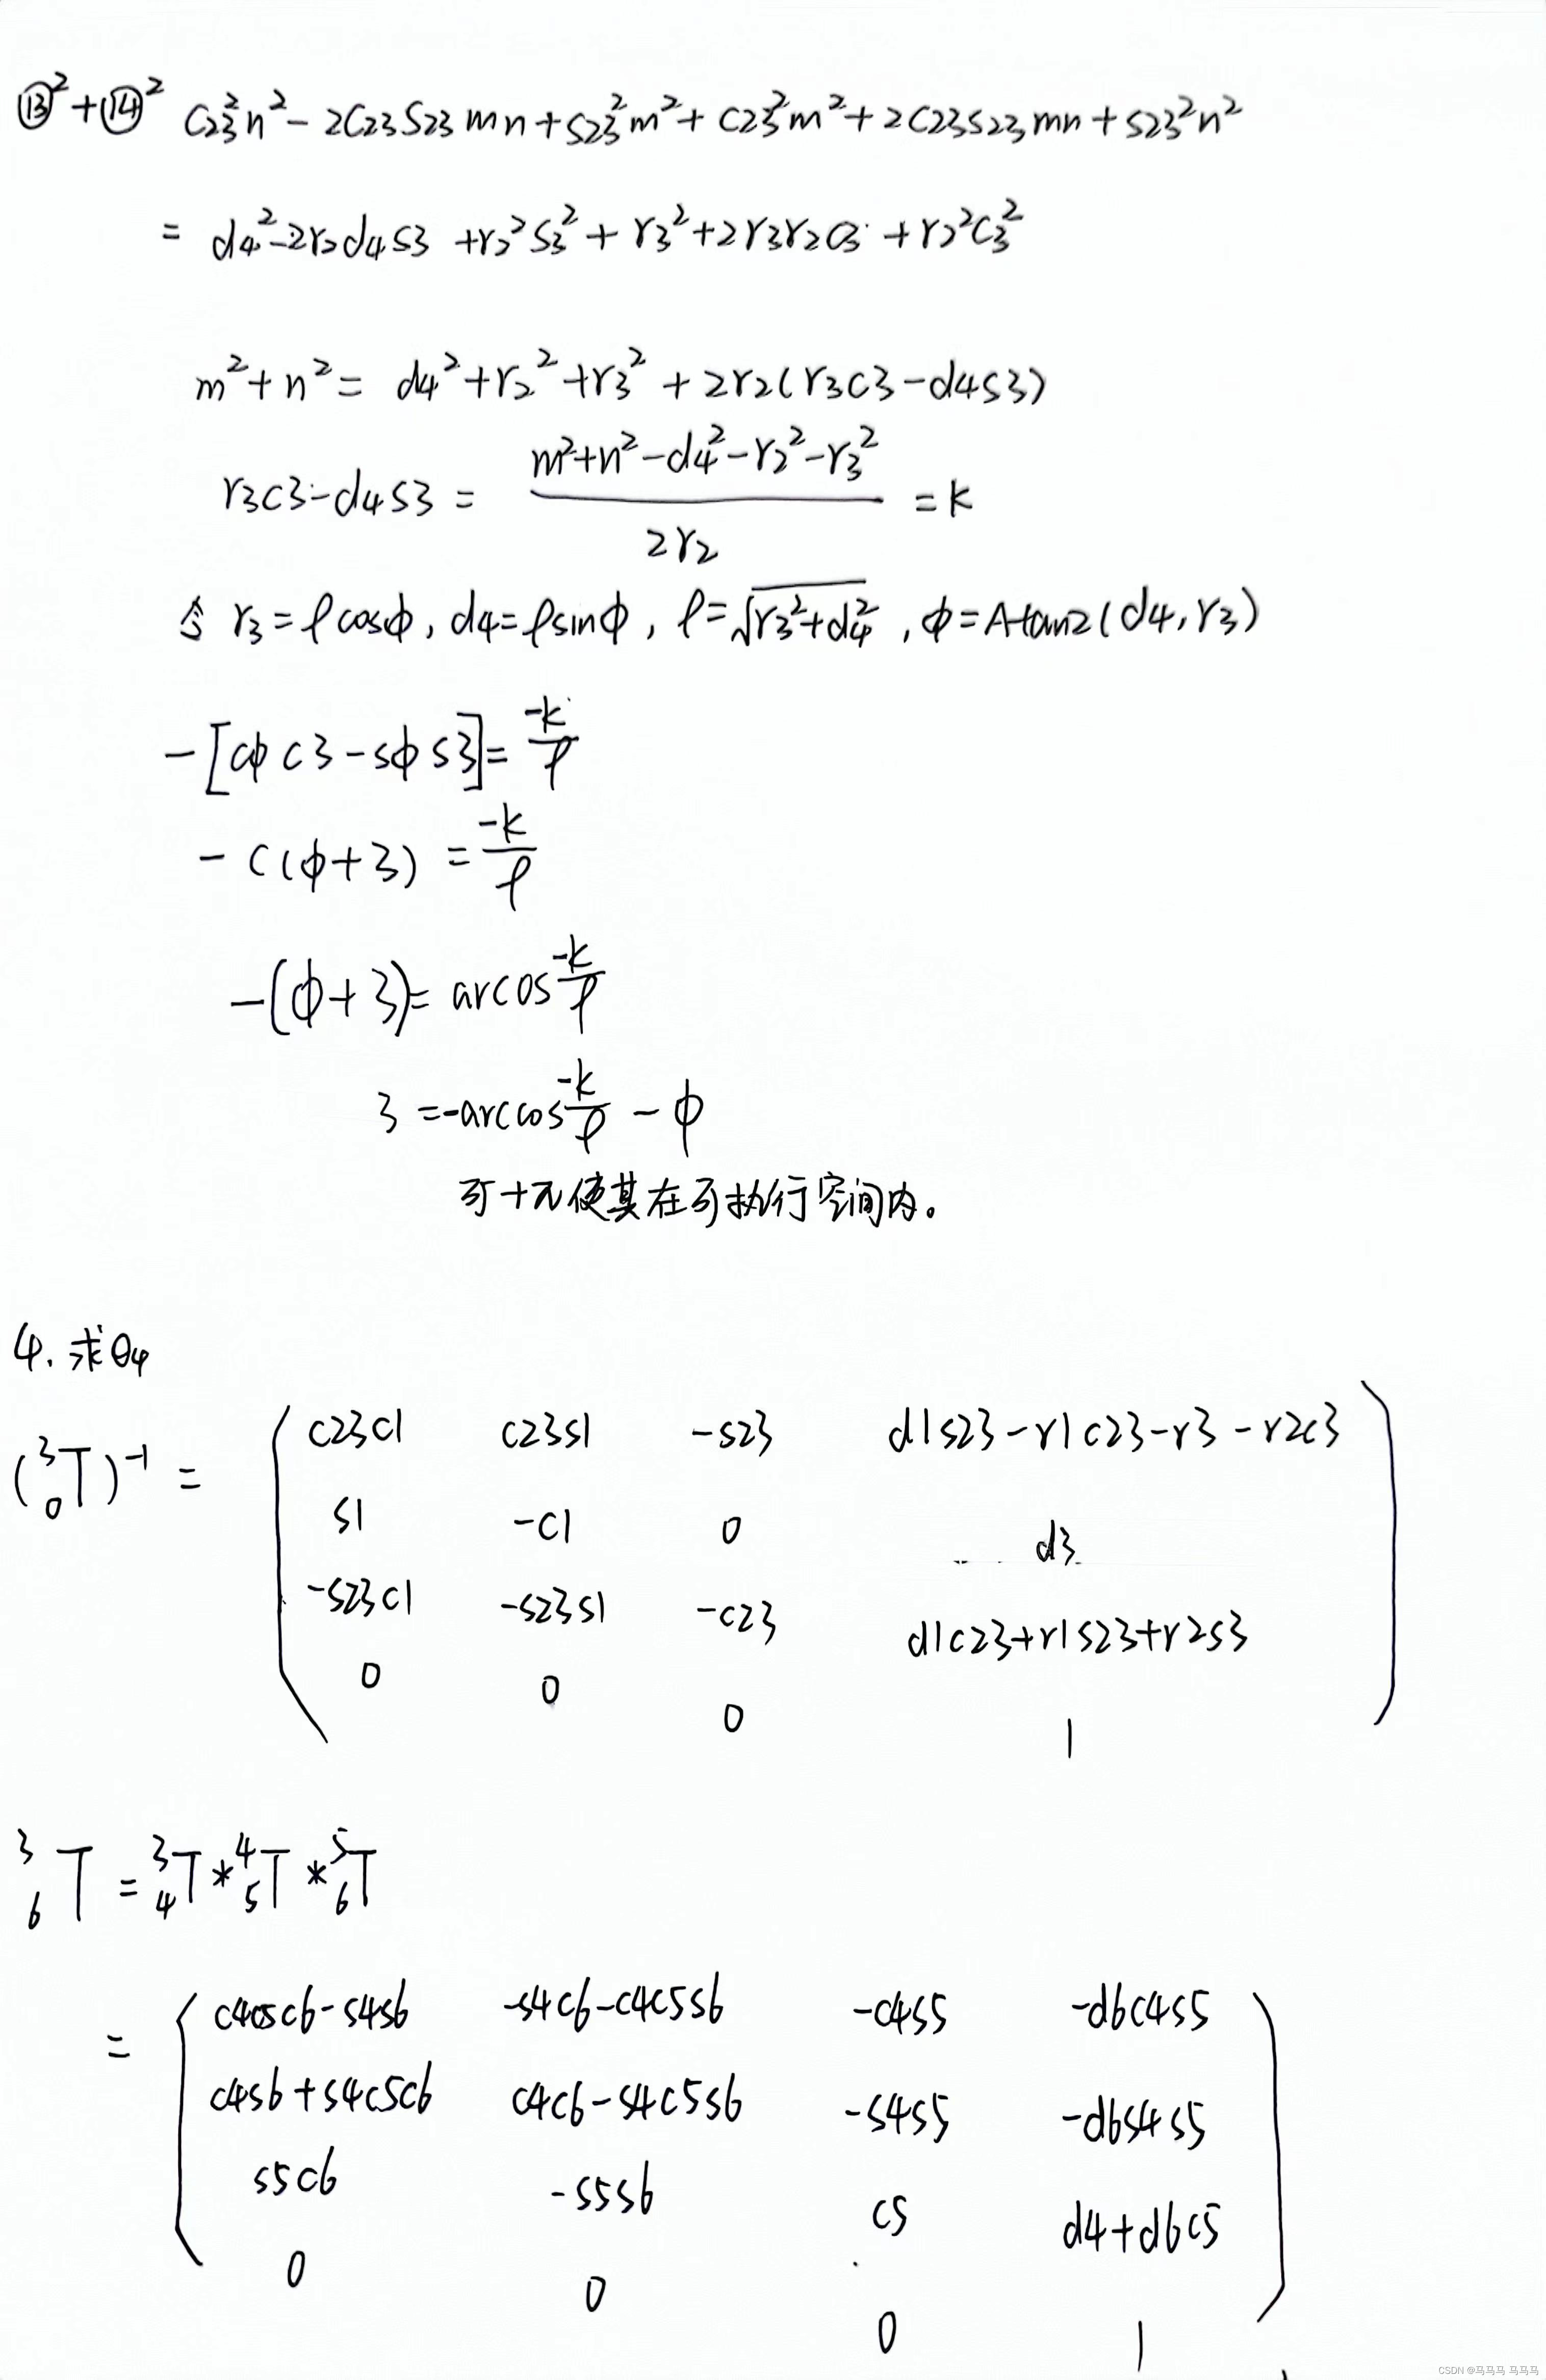 ⑬²+⑭² c23²n²-2c23s23mn+s23²m²+c23²m²+2c23s23mn+s23²n²
= d4²-2r2d4s3+r2²s3²+r3²+2r3r2c3+r2²c3²
m²+n²= d4²+r2²+r3²+2r2(r3c3-d4s3)
r3c3-d4s3 = (m²+n²-d4²-r2²-r3²)/(2r2) = k
令 r3=ρcosϕ, d4=ρsinϕ, ρ=√(r3²+d4²), ϕ=Atan2(d4,r3)
-[cϕc3-sϕs3]=-k/ρ
-c(ϕ+3)=-k/ρ
-(ϕ+3)=arcos -k/ρ
3=-arccos -k/ρ -ϕ
可+π使其在可执行空间内。
4.求θ4
(³₀T)⁻¹ =
c23c1 c23s1 -s23 d1s23-r1c23-r3-r2c3
s1 -c1 0 d3
-s23c1 -s23s1 -c23 d1c23+r1s23+r2s3
0 0 0 1
³₆T=³₄T*⁴₅T*⁵₆T
=
c4c5c6-s4s6 -s4c6-c4c5s6 -c4s5 -d6c4s5
c4s6+s4c5c6 c4c6-s4c5s6 -s4s5 -d6s4s5
s5c6 -s5s6 c5 d4+d6c5
0 0 0 1
CSDN @马马马 马马马